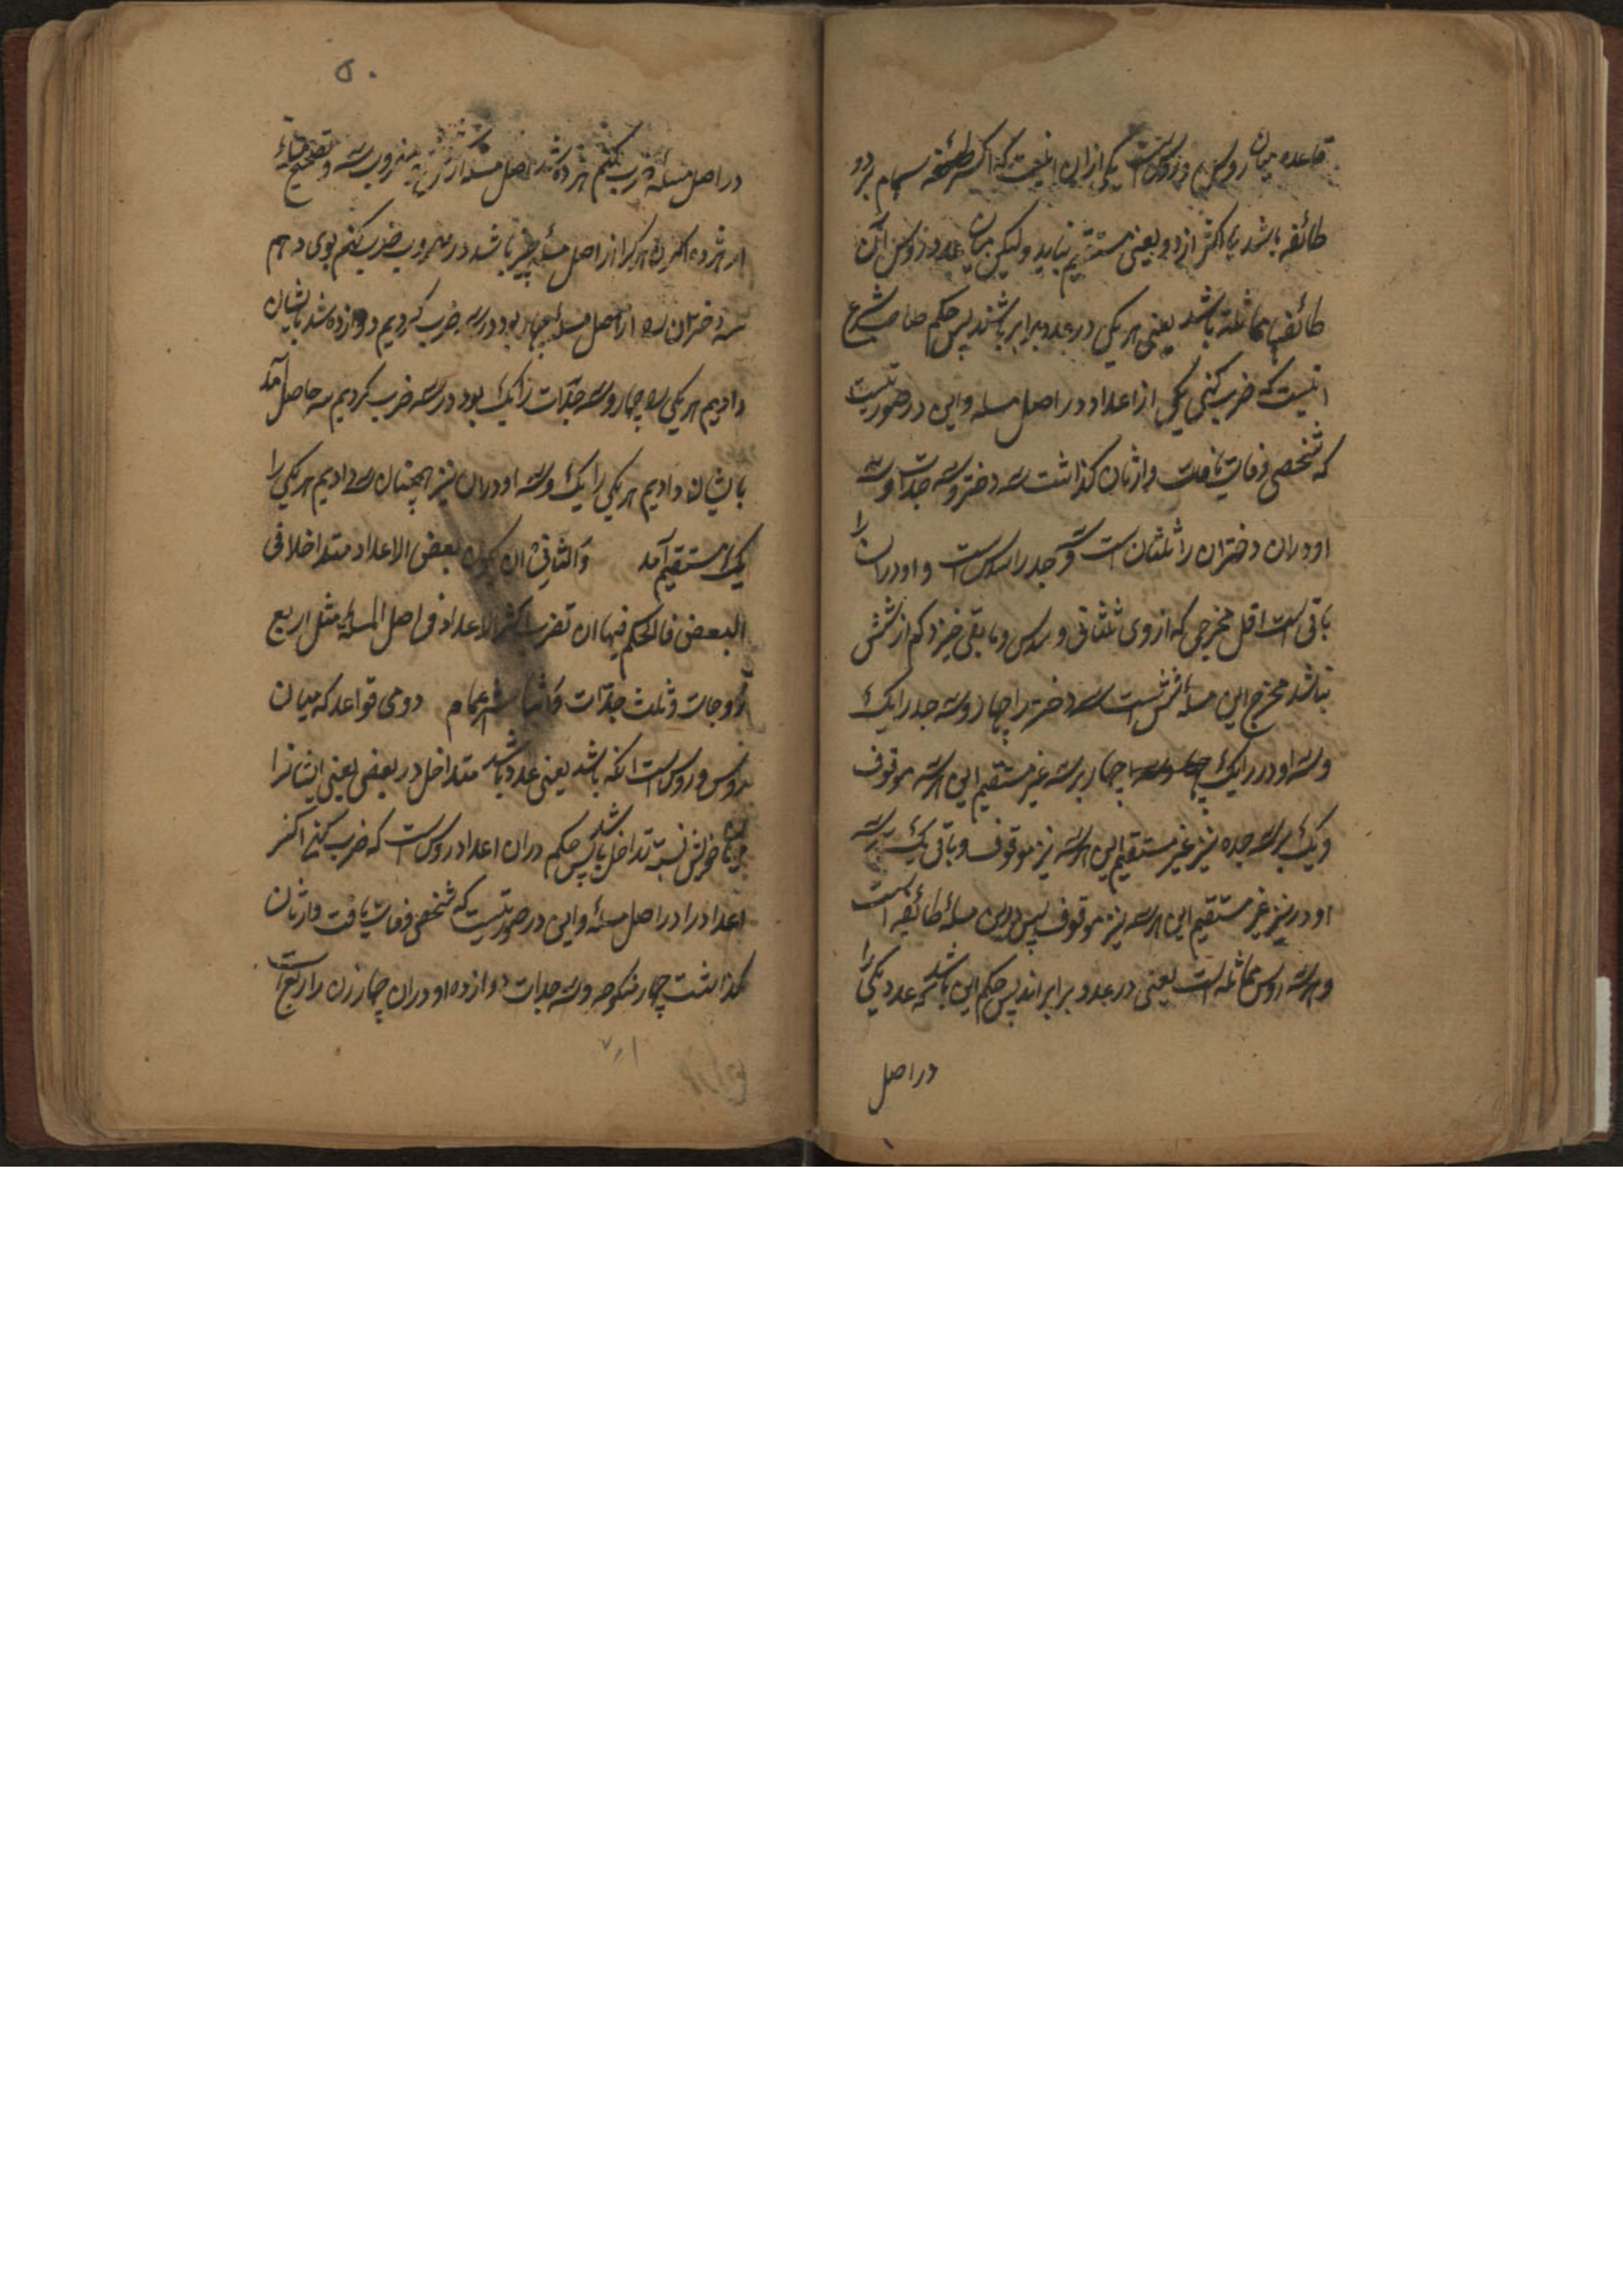 قاعده میان روس و روس است یکی ازان اینست که اکسر طائفه سهام بر دو
طائفه باشد یا اکثر از دو یعنی مستقیم نیاید ولیکن میان عدد روس آن
طائفها مماثله باشد یعنی هر یکی در عدد برابر باشند پس حکم صاحب شرع
اینست که ضرب کنی یکی از اعداد در اصل مسله و این در صورتیست
که شخصی وفات یافت وارثان گذاشت سه دختر و سه جدات و سه
اودران دختران را ثلثان است و سه جد را سدس است و اودران را
باقی است اقل مخرجی که ازوی ثلثانی و سدس و مابقی خیزد کم از شش
نباشد مخرج این مسله شش است سه دختر را چهار و سه جد را یک
و سه اودر را یک چهار بر سه غیر مستقیم این هر سه موقوف
و یک بر سه جده نیز غیر مستقیم این هر سه نیز موقوف و باقی یک بر سه
اودر نیز غیر مستقیم این هر سه نیز موقوف پس درین مسله طائفه است
و هر سه روس مماثله است یعنی در عدد برابر اند پس حکم این باشد که عدد یکی را
در اصل
۵۰
در اصل مسئله ضرب کنیم هژده شد اصل مسئله از شش مضروب سه و تصحیح مسئله
از هژده اکنون هر کرا از اصل مسئله چیز باشد در مضروب ضرب کنیم بوی دهیم
سه دختران را از اصل مسئله چهار بود در سه ضرب کردیم دوازده شد بایشان
دادیم هر یکی را چهار و سه جدات را یک بود در سه ضرب کردیم سه حاصل آمد
بایشان دادیم هر یکی را یک و سه اودران نیز همچنان سه دادیم هر یکی را
یک مستقیم آمد والثانی ان یکون بعض الاعداد متداخلا فی
البعض فالحکم فیها ان تضرب اکثر الاعداد فی اصل المسئله مثل اربع
زوجات و ثلث جدات و اثنا عشر عمام دومی قواعد که میان
روس و روس است آنکه باشد یعنی عدد باشد متداخل در بعضی یعنی ایشانرا
میان خویش نسبت تداخل باشد پس حکم دران اعداد روس است که ضرب کنی اکثر
اعداد را در اصل مسئله و این در صورتیست که شخصی وفات یافت وارثان
گذاشت چهار منکوحه و سه جدات دوازده اودران چهار زن را ربع است